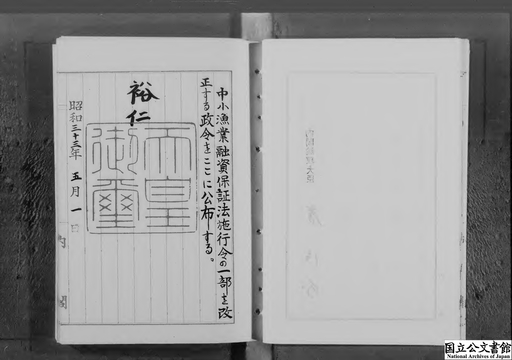 中小漁業融資保証法施行令の一部を改
正する政令をここに公布する。
裕仁
天皇
御璽
昭和三十三年五月一日
内閣
国立公文書館
National Archives of Japan